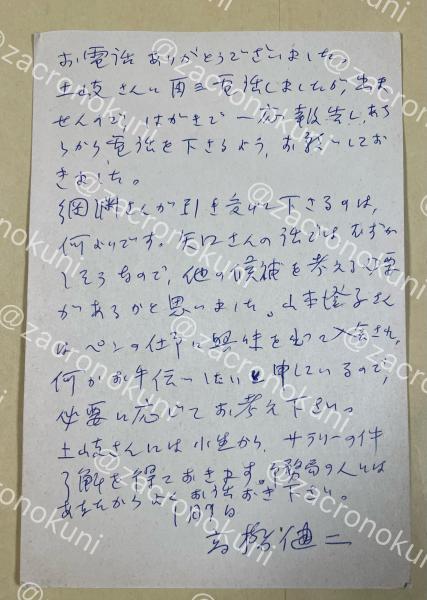 お電話ありがとうございました。
土岐さんに再三電話しましたが、出ま
せんので、はがきで一応報告し、あち
らから電話を下さるよう、お願いしてお
きました。
綱淵さんが引き受けて下さるのは、
何よりです。矢口さんの話ではむずか
しそうなので、他の候補を考える必要
があるかと思いました。山本澄子さん
はペンの仕事に興味を もって入会され、
何かお手伝いしたいと申しているので、
必要に応じてお考え下さい。
土岐さんには小生から、サラリーの件
了解を得ておきます。事務局の人には
あなたからよくお話おき下さい。
高橋健二
@zacronokuni